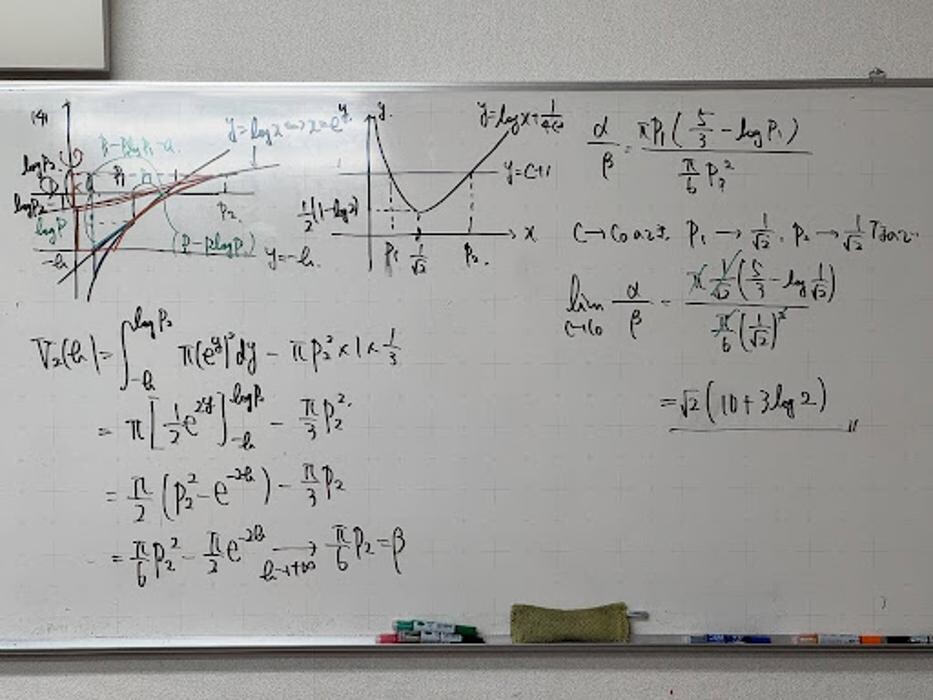 (4)
y=logx⇔x=e^y
logP₂
logP
P₂
-h
y=-h
y
y=logx+1/(4x²)
y=c+1
1/2(1-log2)
P₁ 1/√2 P₂ x
α/β = πP₁(5/3 - logP₁) / (π/6 P₂²)
C→C₀のとき P₁→1/√2, P₂→1/√2
lim_{C→C₀} α/β = π 1/√2 (5/3 - log 1/√2) / (π/6 (1/√2)²)
=√2(10+3log2)
V₂(h)=∫_{-h}^{logP₂} π(e^y)²dy - πP₂²×1×1/3
= π[1/2 e^{2y}]_{-h}^{logP₂} - π/3 P₂²
= π/2 (P₂² - e^{-2h}) - π/3 P₂
= π/6 P₂² - π/2 e^{-2h} → h→+∞ π/6 P₂ = β